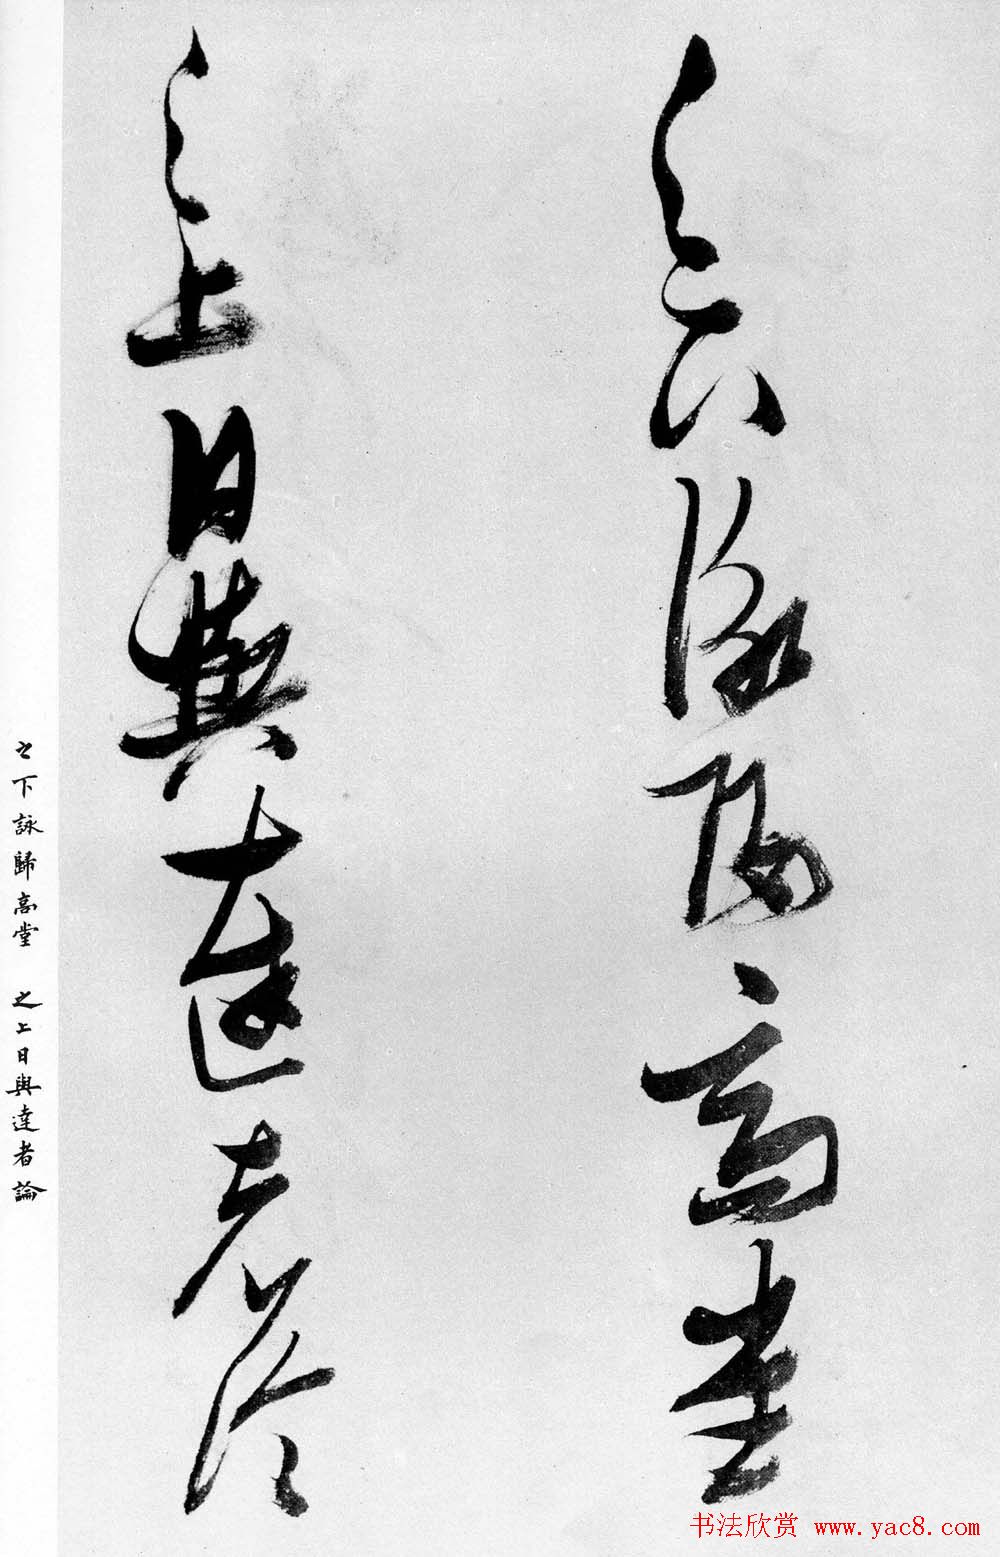 之下詠歸高堂
之上日與達者論
之下詠歸高堂 之上日與達者論
书法欣赏 www.yac8.com